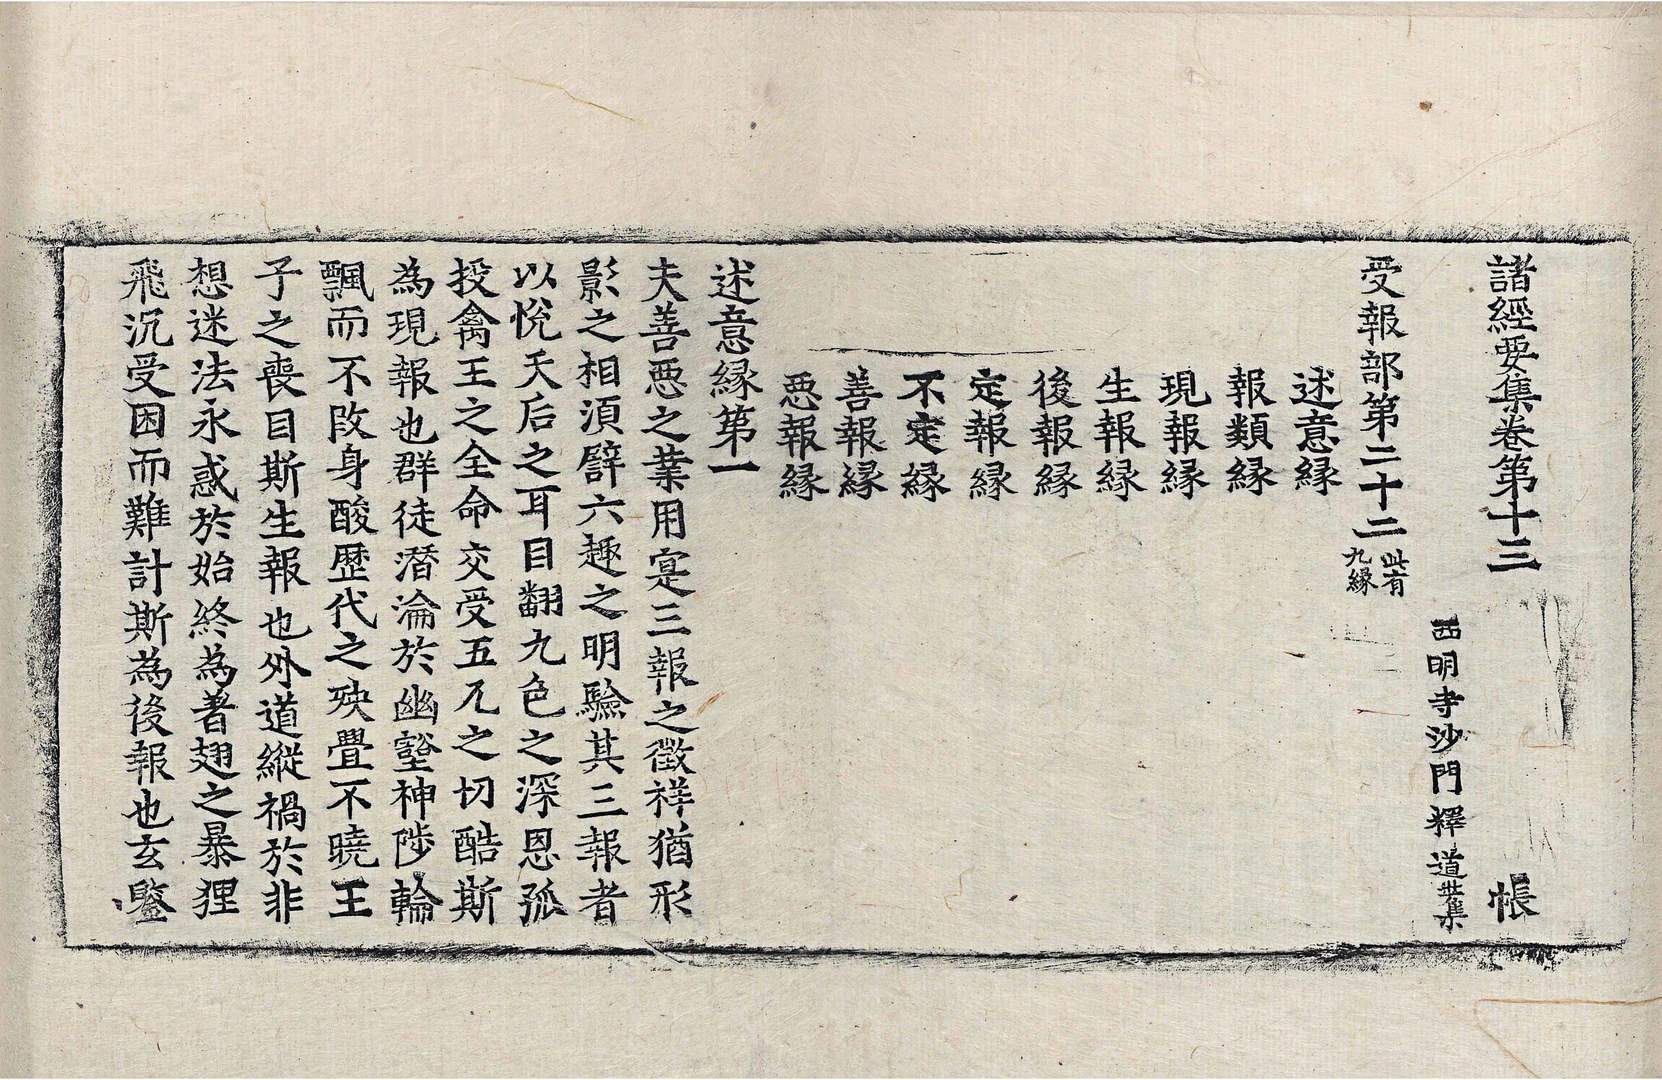 諸經要集卷第十三 帳
西明寺沙門釋道世集
受報部第二十二 此有九緣
述意緣
報類緣
現報緣
生報緣
後報緣
定報緣
不定緣
善報緣
惡報緣
述意緣第一
夫善惡之業用寔三報之徵祥猶形
影之相須譬六趣之明驗其三報者
以悅天后之耳目翻九色之深恩孤
投禽王之全命交受五兀之切酷斯
為現報也群徒潛淪於幽壑神陟輪
飄而不改身酸歷代之殃疊不曉王
子之喪目斯生報也外道縱禍於非
想迷法永惑於始終為著翅之暴狸
飛沉受困而難計斯為後報也玄鑒